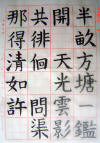 半畝方塘一鑑
開 天光雲影
共徘徊 問渠
那得清如許